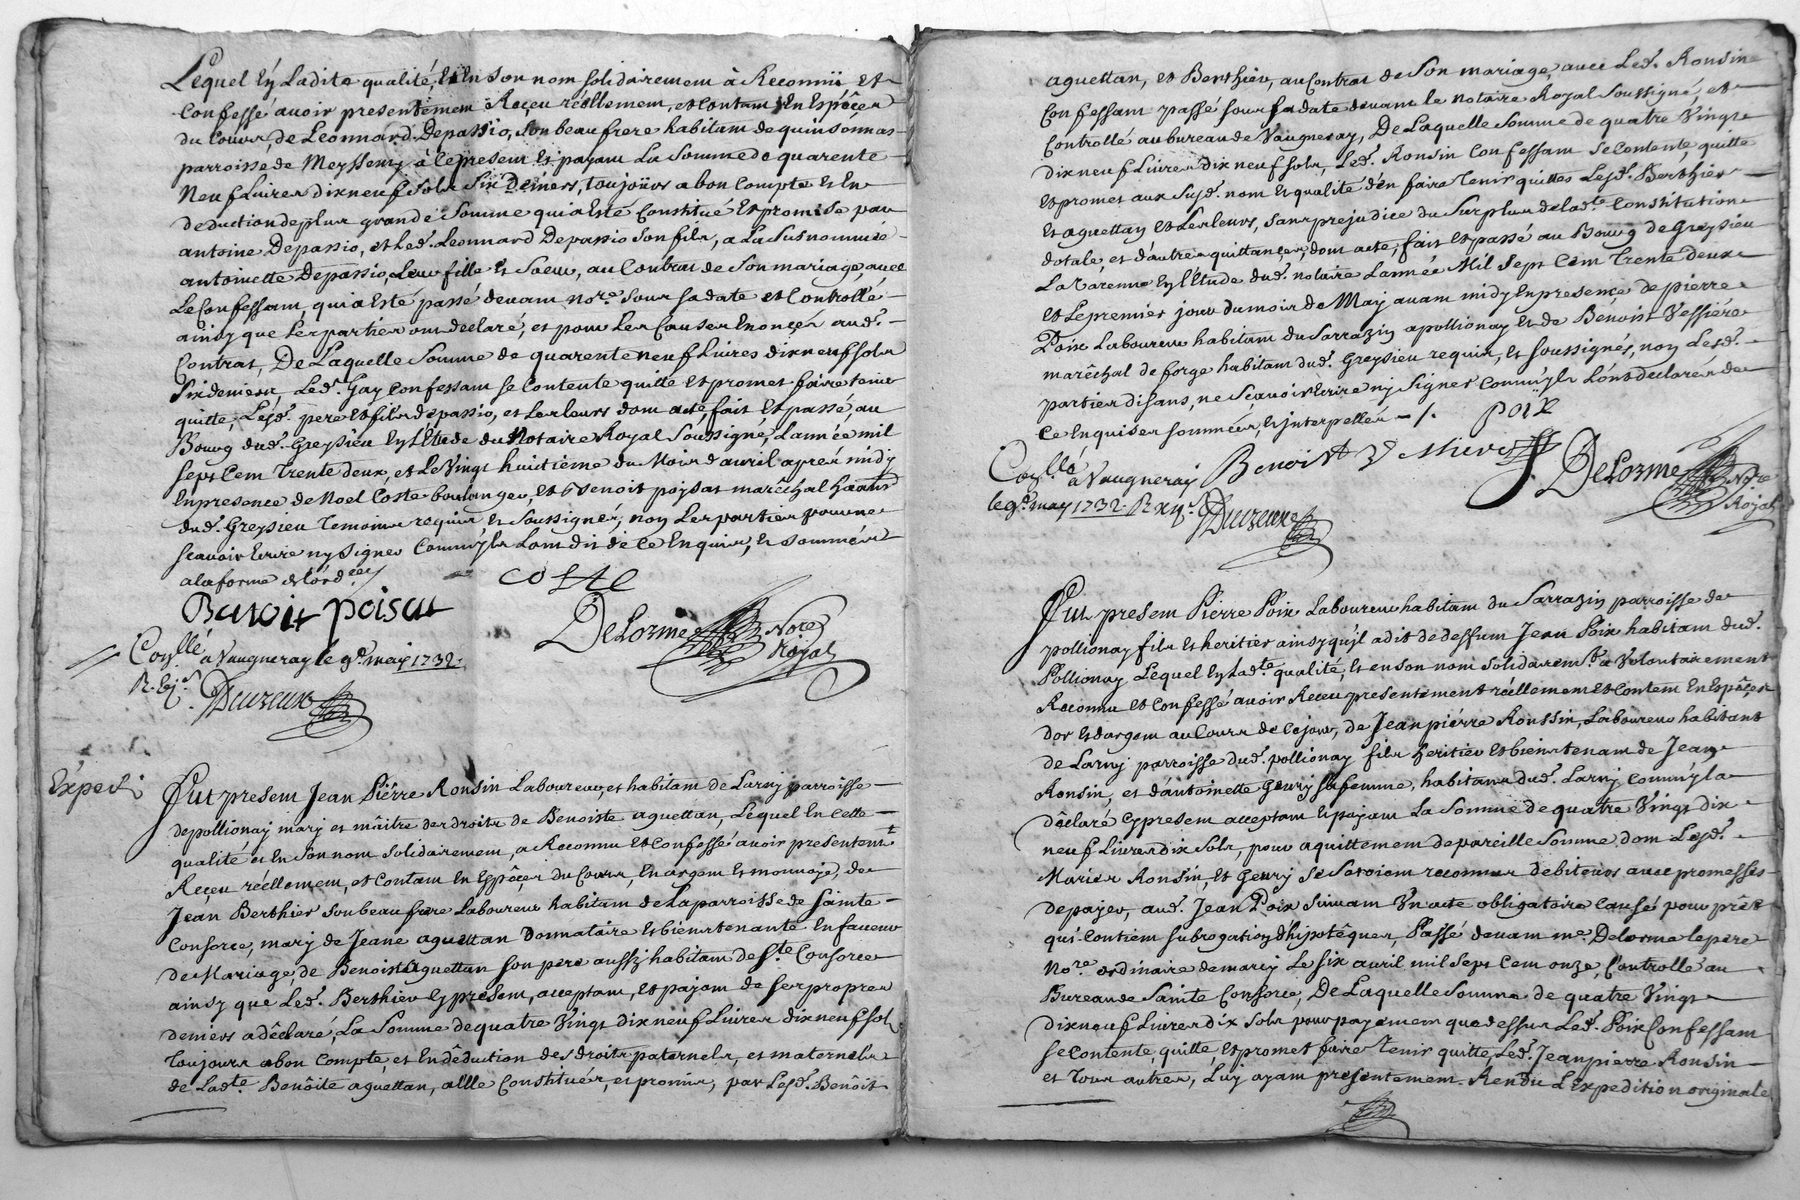 Lequel En Ladite qualité, Et En son nom solidairement à Reconnü et
Confessé auoir presentement Reçeu réellement, et Contant En Espéçes
du Cours, de Leonnard Depassio, son beau frere habitant de quinsonnas
parroisse de Meyssemy à Ce present Et payant La Somme de quarente
Neuf Liures dix neuf Sols Six Deniers, toujoürs a bon Compte Et En
deduction de plus grande Somme qui à Esté Constitué Et promise par
antoine Depassio, et Led. Leonnard Depassio son fils, a La Susnommée
antoinette Depassio, Leur fille Et Soeur, au Contrat de Son mariage, auec
Le Confessant, qui à Esté passé deuant no.re Sous Sa date et Controllé
ainsy que Les parties ont declaré, et pour Les Causes Enonçées aud.
Contrat, De Laquelle Somme de quarente neuf Liures dix neuf sols
Six deniers, Led. Gay Confessant se Contente quitte Et promet faire tenir
quitte, Lesd. pere et fils depassio, et Les leurs dont acte, fait Et passé, au
Bourg dud. Greysieu En L'Etude du Notaire Royal Soussigné, L'année mil
sept Cent Trente deux, et Le Vingt huitieme du Mois d'auril aprés midy
En presence de Noel Coste boulanger, Et Benoit poysat maréchal
dud. Greysieu temoins requis Et Soussignés, non Les parties pour ne
scauoir Ecrire ny Signer Comm'yls L'ont dit de Ce Enquis, Et Sommés
a la forme de l'ord.ce
Coste
Benoit poisat
DeLorme No.re Royal
Con.llé à Vaugneray le 9e. may 1732.
R. 6 s.
Duzeux
Expedi
Fut present Jean Piérre Ronsin Laboureur, et habitant de Larny parroisse
de pollionay mary et maître des droits de Benoiste aguettan, Lequel En Cette
qualité et En Son nom Solidairement, a Reconnu Et Confessé auoir presentemt
Reçeu réellement, et Contant En Espéçes du Cours, En argent Et monnoye, de
Jean Berthier Son beau frere Laboureur habitant de La parroisse de Sainte
Consorce, mary de Jeane aguettan Donnataire Et bien tenante En faueur
de Mariage, de Benoist Aguettan son pere aussy habitant de Ste Consorce
ainsy que Led. Berthier Cy present, acceptant, Et payant de Ses propres
deniers a déclaré, La Somme de quatre Vingt dix neuf Liures dix neuf sols
Toujours a bon Compte, et En déduction des droits paternels, et maternels
de Lad.te Benôite aguettan, a Elle Constitués, et promis, par Lesd. Benôit
aguettan, et Berthier, au Contrat de Son mariage, auec Led. Ronsin
Confessant passé sous Sa date deuant le notaire Royal Soussigné, et
Controllé au bureau de Vaugneray, De Laquelle Somme de quatre Vingt
dix neuf Liures dix neuf sols, Led. Ronsin Confessant Se Contente, quitte
Et promet aux Susd. nom Et qualité d'En faire Tenir quittes Lesd. Berthier
Et aguettan Et Les Leurs, Sans prejudice du Surplus de Lad.te Constitution
dotale, et d'autres quittances, dont acte, fait Et passé au Bourg de Greysieu
La Varenne En L'Etude dud. notaire L'année Mil Sept Cent Trente deux
et Le premier jour du mois de May auant midy En presence de pierre
Poix Laboureur habitant du Sarrazin a pollionay Et de Benoist Vessiére
maréchal de forge habitant dud. Greysieu requis, Et soussignés, non Lesd.
parties disans, ne Scauoir Ecrire ny Signer Comm'yls L'ont declaré de
Ce Enquises sommées, Et interpellées — /.
poix
Con.llé à Vaugneray
le 9e. may 1732.
Duzeux
Benoist
DeLorme No.re Royal
Fut present Pierre Poix Laboureur habitant du Sarrazin parroisse de
pollionay fils Et heritier ainsy qu'il a dit de deffunt Jean Poix habitant dud.
Pollionay Lequel En Lad.te qualité, Et en son nom solidairem.t a Volontairement
Reconnu et Confessé auoir Receu presentement réellement et Contant En Espéçes
d'or et d'argent au Cours de Ce jour, de Jean piérre Ronssin, Laboureur habitant
de Larny parroisse dud. pollionay fils heritier Et bien tenant de Jean
Ronsin, et d'antoinette Geury Sa femme, habitans dud. Larny Comm'yl a
déclaré Cy present acceptant Et payant La Somme de quatre Vingt dix
neuf Liures dix Sols, pour aquittement de pareille Somme dont Lesd.
Mariés Ronsin, Et Geury Se Seroient reconnus debiteurs auec promesses
de payer, aud. Jean Poix Suiuant Un acte obligatoire Causé pour prêt
qui Contient Subrogation d'hipotéques, Passé deuant me. Delorme le pere
No.re ordinaire de marcy Le Six auril mil Sept Cent onze, Controllé au
Bureau de Sainte Consorce, De Laquelle Somme de quatre Vingt
dix neuf Liures dix Sols pour payement que dessus Led. Poix Confessant
se Contente, quitte, Et promet faire tenir quitte, Led. Jean pierre Ronsin
et tous autres, Luy ayant presentement Rendu L'Expedition originale